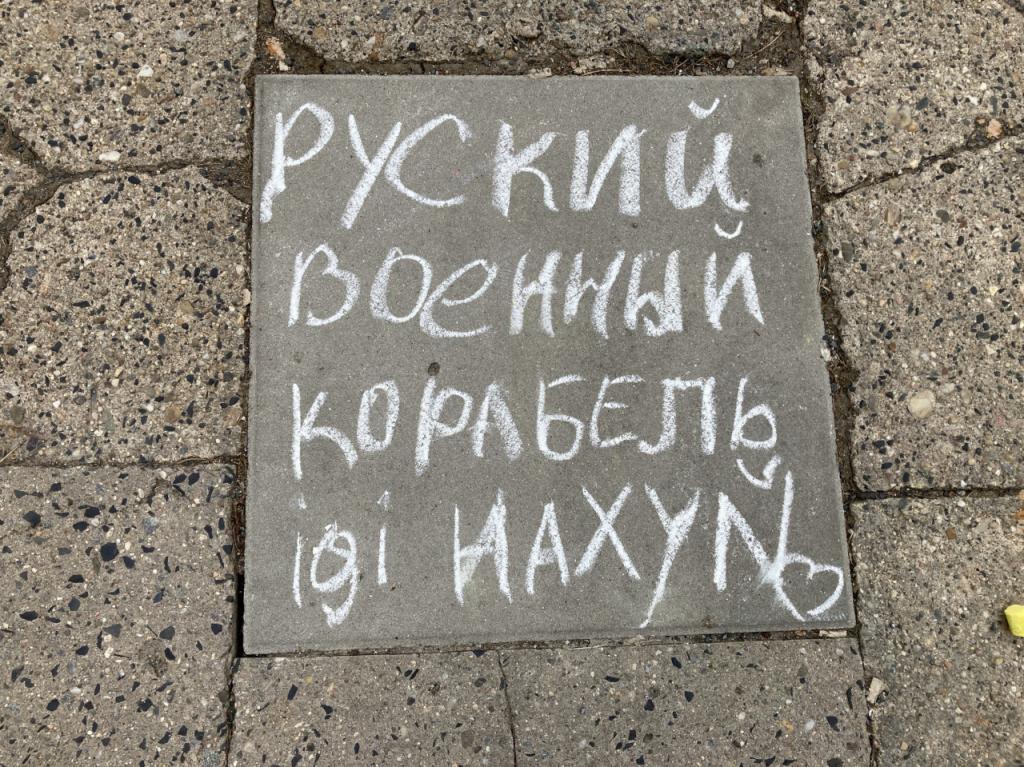 РУСКИЙ
ВОЕННЫЙ
КОРАБЕЛЬ
ІДІ НАХУЙ